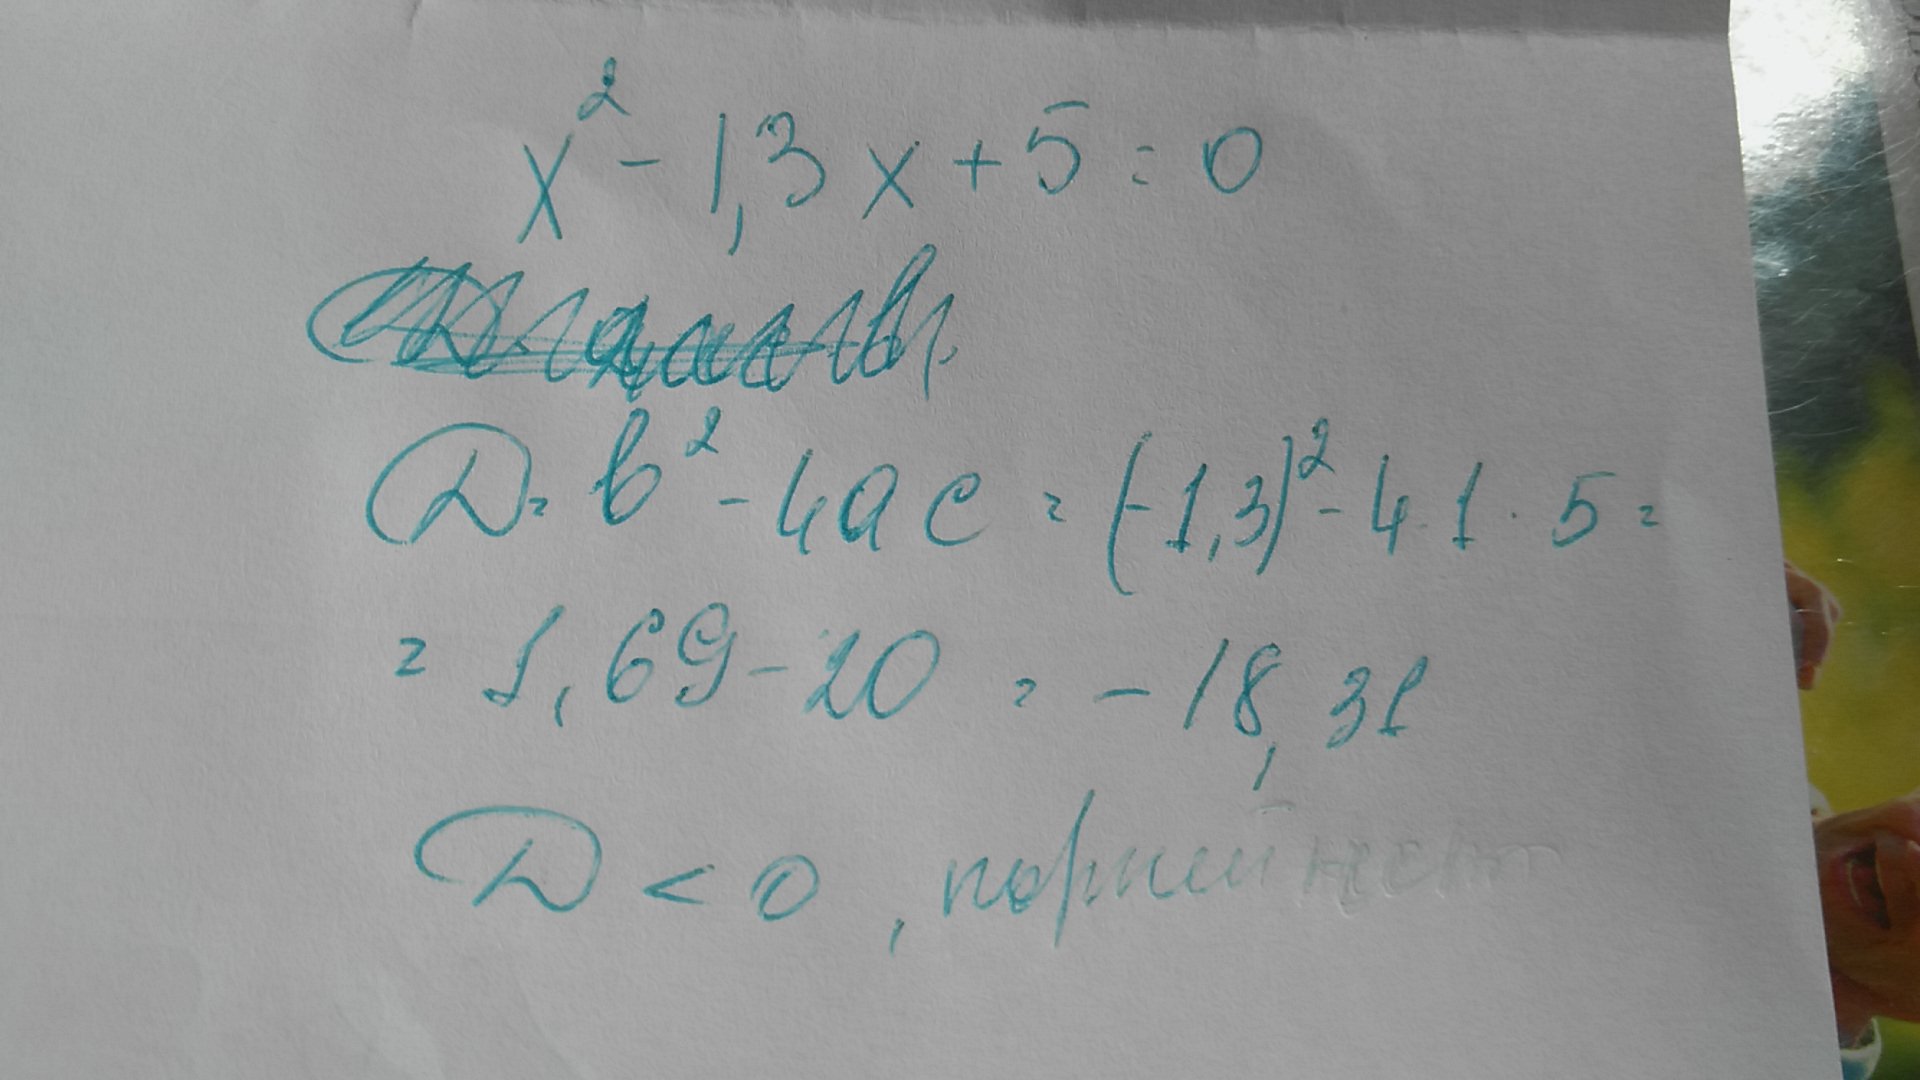 x² - 1,3x + 5 = 0
D = b² - 4ac = (-1,3)² - 4·1·5 =
= 1,69 - 20 = -18,31
D < 0, корней нет